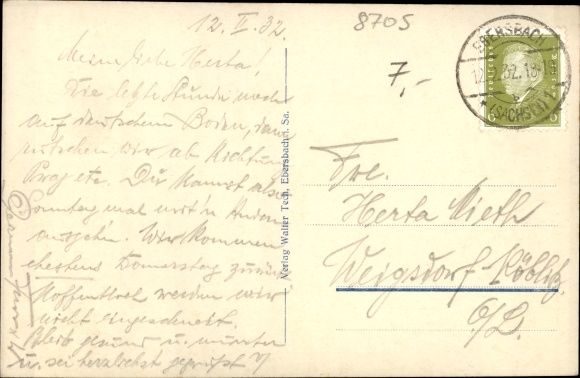 12. II. 32
8705
7,-
Meine liebe Herta!
Die letzte Stunde noch
auf deutschem Boden, dann
rutschen wir ab Richtung
Prag etc. Du kannst also
Sonntag mal mit'n
ausgehn. Wir kommen
ehestens Donnerstag zurück
Hoffentlich werden wir
nicht eingeschneit.
Bleib gesund u. munter
u. sei herzlichst gegrüßt v/
Verlag Walter Tech, Ebersbach i. Sa.
EBERSBACH
12. 2. 32. 18
(SACHSEN)
DEUTSCHES REICH
6 6
Frl.
Herta Mieth
Weigsdorf-Köblitz
O/L.